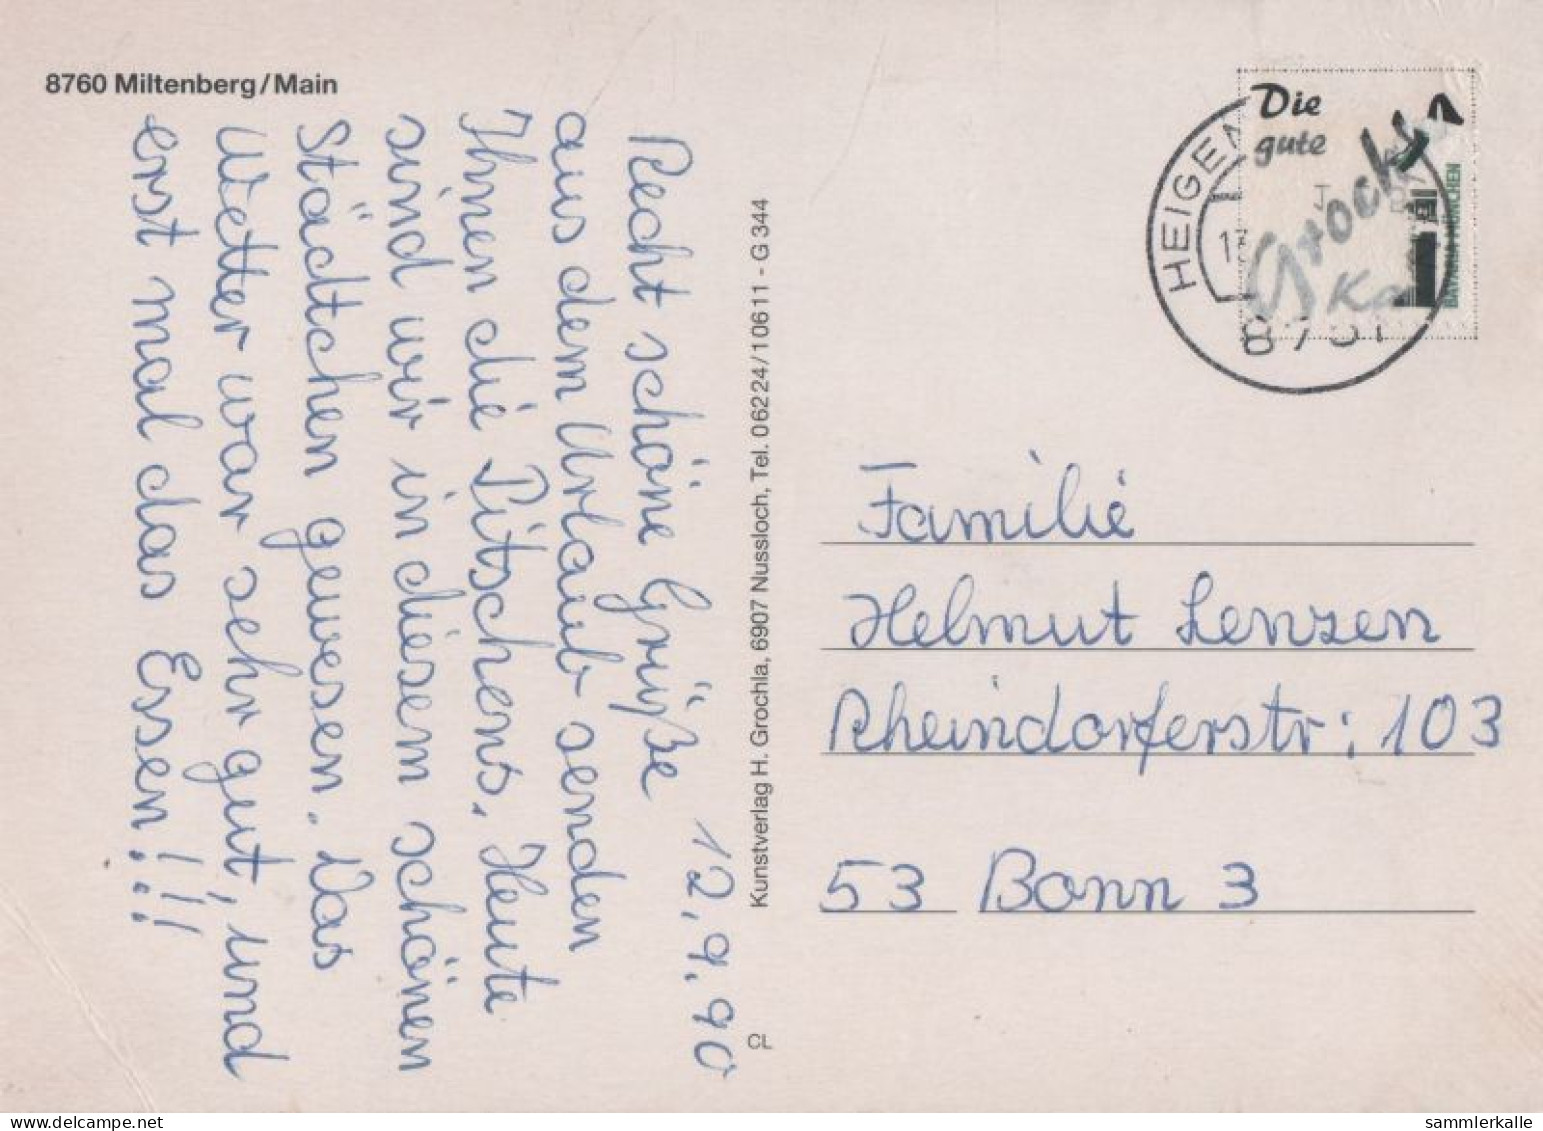 8760 Miltenberg/Main
12.9.90
Recht schöne Grüße
aus dem Urlaub senden
Ihnen die Pitschens. Heute
sind wir in diesem schönen
Städtchen gewesen. Das
Wetter war sehr gut, und
erst mal das Essen!!!
Kunstverlag H. Grochla, 6907 Nussloch, Tel. 06224/10611 - G 344
CL
Die
gute
Grochla
HEIGEN
8751
BAVARIA MÜNCHEN
Familie
Helmut Lenzen
Rheindorferstr: 103
53 Bonn 3
sammlerkalle